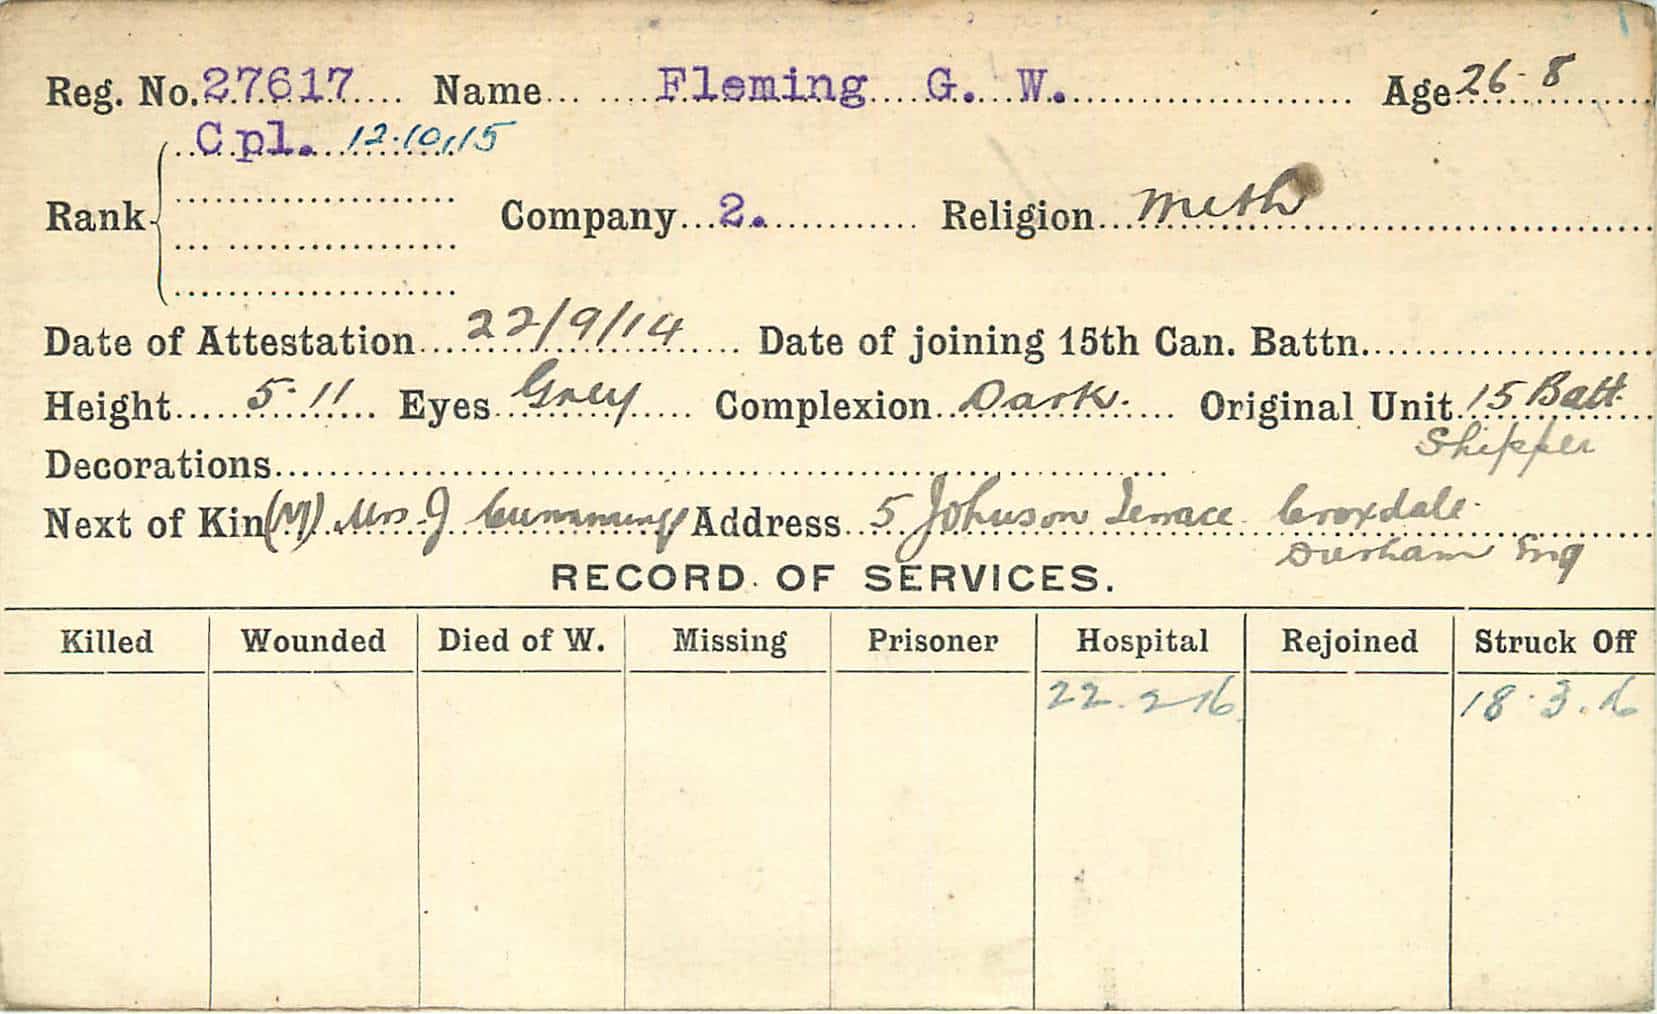 Reg. No. 27617 Name Fleming G. W. Age 26-8
Cpl. 12.10.15
Rank Company 2. Religion Meth
Date of Attestation 22/9/14 Date of joining 15th Can. Battn.
Height 5.11 Eyes Grey Complexion Dark. Original Unit 15 Batt.
Shipper
Decorations
Next of Kin (M) Mrs. J Cummings Address 5 Johnson Terrace Croxdale.
Durham Eng
RECORD OF SERVICES.
Killed Wounded Died of W. Missing Prisoner Hospital Rejoined Struck Off
22.2-16 18.3.16